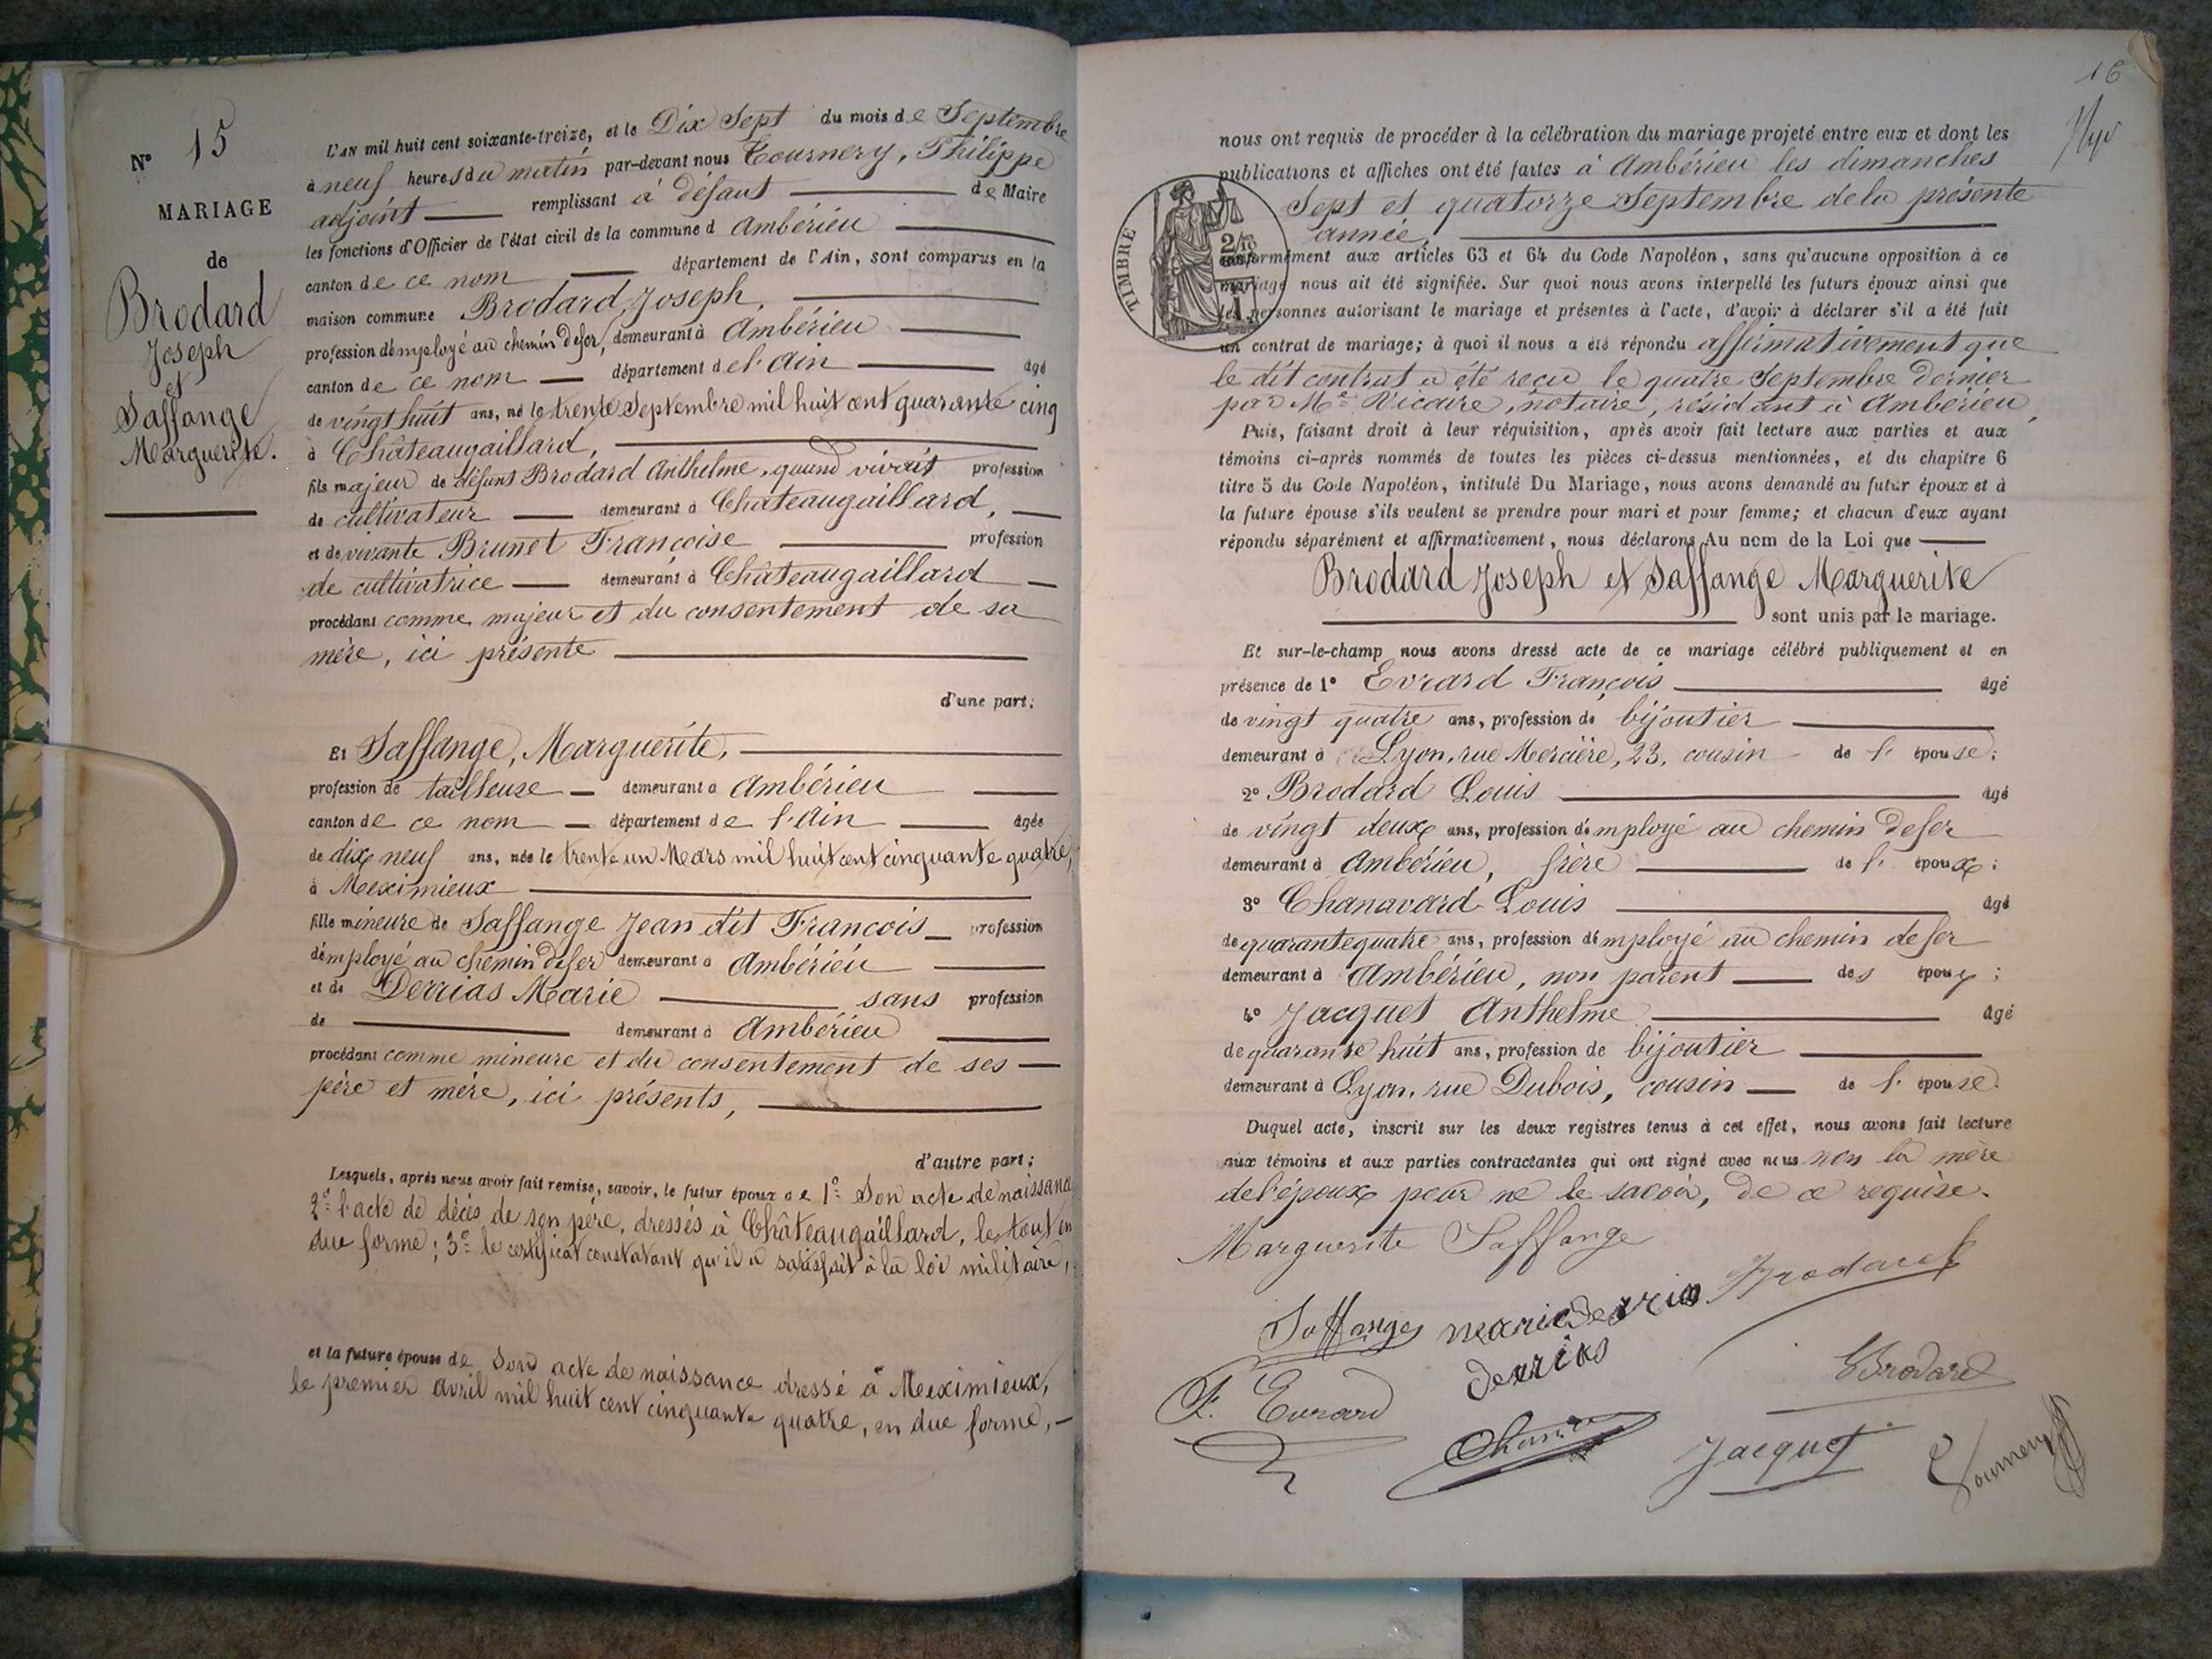 N° 15
MARIAGE
de
Brodard
Joseph
et
Saffange
Marguerite.
L'AN mil huit cent soixante-treize, et le Dix Sept du mois de Septembre
à neuf heures du matin par-devant nous Tournery, Philippe
adjoint remplissant à défaut de Maire
les fonctions d'Officier de l'état civil de la commune d Ambérieu
canton de ce nom département de l'Ain, sont comparus en la
maison commune Brodard, Joseph,
profession d'employé au chemin de fer, demeurant à Ambérieu
canton de ce nom département de l'Ain âgé
de vingt huit ans, né le trente Septembre mil huit cent quarante cinq
à Châteaugaillard,
fils majeur de défunt Brodard Anthelme, quand vivait profession
de cultivateur demeurant à Châteaugaillard,
et de vivante Brunet Françoise profession
de cultivatrice demeurant à Châteaugaillard
procédant comme majeur et du consentement de sa
mère, ici présente
d'une part;
Et Saffange, Marguerite,
profession de tailleuse demeurant à Ambérieu
canton de ce nom département de l'Ain âgée
de dix neuf ans, née le trente un Mars mil huit cent cinquante quatre,
à Meximieux
fille mineure de Saffange Jean dit François profession
d'employé au chemin de fer demeurant à Ambérieu
et de Derrias Marie sans profession
de demeurant à Ambérieu
procédant comme mineure et du consentement de ses
père et mère, ici présents,
d'autre part;
Lesquels, après nous avoir fait remise, savoir, le futur époux de 1° Son acte de naissance
2° l'acte de décès de son père, dressés à Châteaugaillard, le tout en
due forme; 3° le certificat constatant qu'il a satisfait à la loi militaire,
et la future épouse de Son acte de naissance dressé à Meximieux,
le premier avril mil huit cent cinquante quatre, en due forme,
16
nous ont requis de procéder à la célébration du mariage projeté entre eux et dont les
publications et affiches ont été faites à Ambérieu les dimanches
Sept et quatorze Septembre de la présente
année,
TIMBRE
2/10
conformément aux articles 63 et 64 du Code Napoléon, sans qu'aucune opposition à ce
mariage nous ait été signifiée. Sur quoi nous avons interpellé les futurs époux ainsi que
les personnes autorisant le mariage et présentes à l'acte, d'avoir à déclarer s'il a été fait
un contrat de mariage; à quoi il nous a été répondu affirmativement que
le dit contrat a été reçu le quatre Septembre dernier
par Me Vicaire, notaire, résidant à Ambérieu,
Puis, faisant droit à leur réquisition, après avoir fait lecture aux parties et aux
témoins ci-après nommés de toutes les pièces ci-dessus mentionnées, et du chapitre 6
titre 5 du Code Napoléon, intitulé Du Mariage, nous avons demandé au futur époux et à
la future épouse s'ils veulent se prendre pour mari et pour femme; et chacun d'eux ayant
répondu séparément et affirmativement, nous déclarons Au nom de la Loi que
Brodard Joseph et Saffange Marguerite
sont unis par le mariage.
Et sur-le-champ nous avons dressé acte de ce mariage célébré publiquement et en
présence de 1° Evrard François âgé
de vingt quatre ans, profession de bijoutier
demeurant à Lyon, rue Mercière, 23, cousin de l' épouse;
2° Brodard Louis âgé
de vingt deux ans, profession d'employé au chemin de fer
demeurant à Ambérieu, frère de l' époux;
3° Chanavard Louis âgé
de quarante quatre ans, profession d'employé au chemin de fer
demeurant à Ambérieu, non parent des époux;
4° Jacquet Anthelme âgé
de quarante huit ans, profession de bijoutier
demeurant à Lyon, rue Dubois, cousin de l' épouse.
Duquel acte, inscrit sur les deux registres tenus à cet effet, nous avons fait lecture
aux témoins et aux parties contractantes qui ont signé avec nous non la mère
de l'époux pour ne le savoir, de ce requise.
Marguerite Saffange
Brodard
Saffange marie derrias
derrias
F. Evrard
Brodard
Jacquet
Tournery